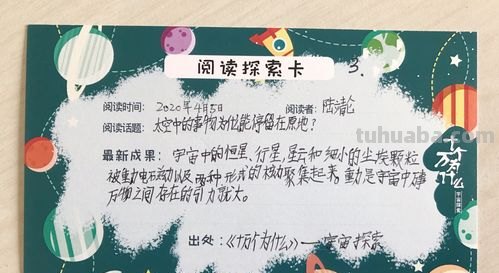 阅读探索卡
3.
阅读时间：2020年4月5日 阅读者：陆清伦
阅读话题：太空中的事物为什么能停留在原地？
最新成果：宇宙中的恒星、行星、星云和细小的尘埃颗粒
被動电磁动以及两种形式的核动聚集起来，動是宇宙中璂
万物之间存在的引力犹大。
出处：《十万个为什么》——宇宙探索
十万个为什么
宇宙探索
tuhuaba.com